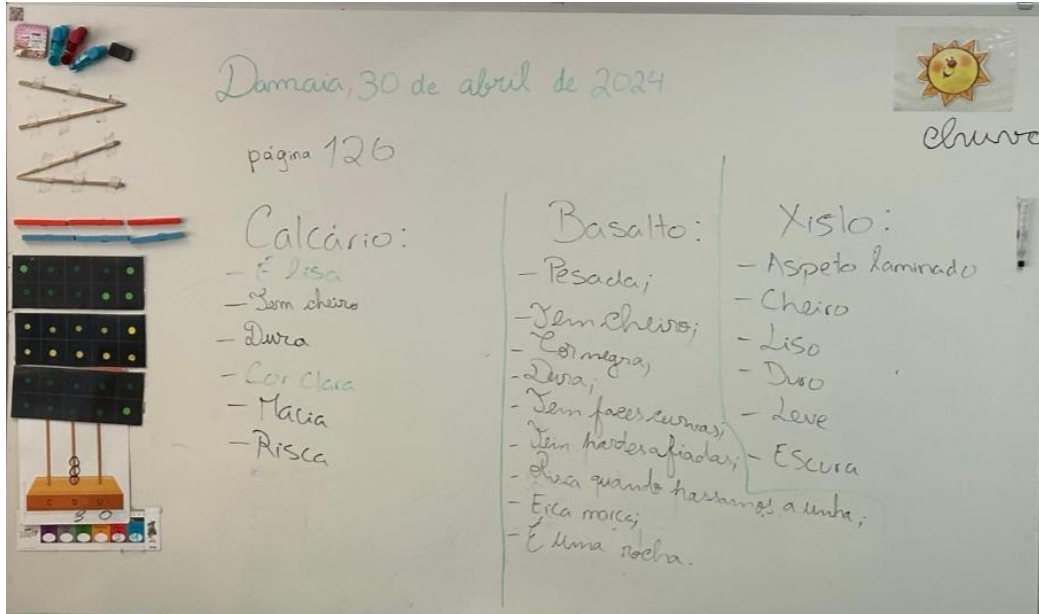 Damaia, 30 de abril de 2024
chuva
página 126
Calcário:
- É lisa
- Tem cheiro
- Dura
- Cor clara
- Macia
- Risca
Basalto:
- Pesada;
- Tem cheiro;
- Cor negra;
- Dura;
- Tem faces curvas;
- Tem partes afiadas;
- Risca quando passamos a unha;
- Fica marca;
- É uma rocha.
Xisto:
- Aspeto laminado
- Cheiro
- Liso
- Duro
- Leve
- Escura
C D U
3 0